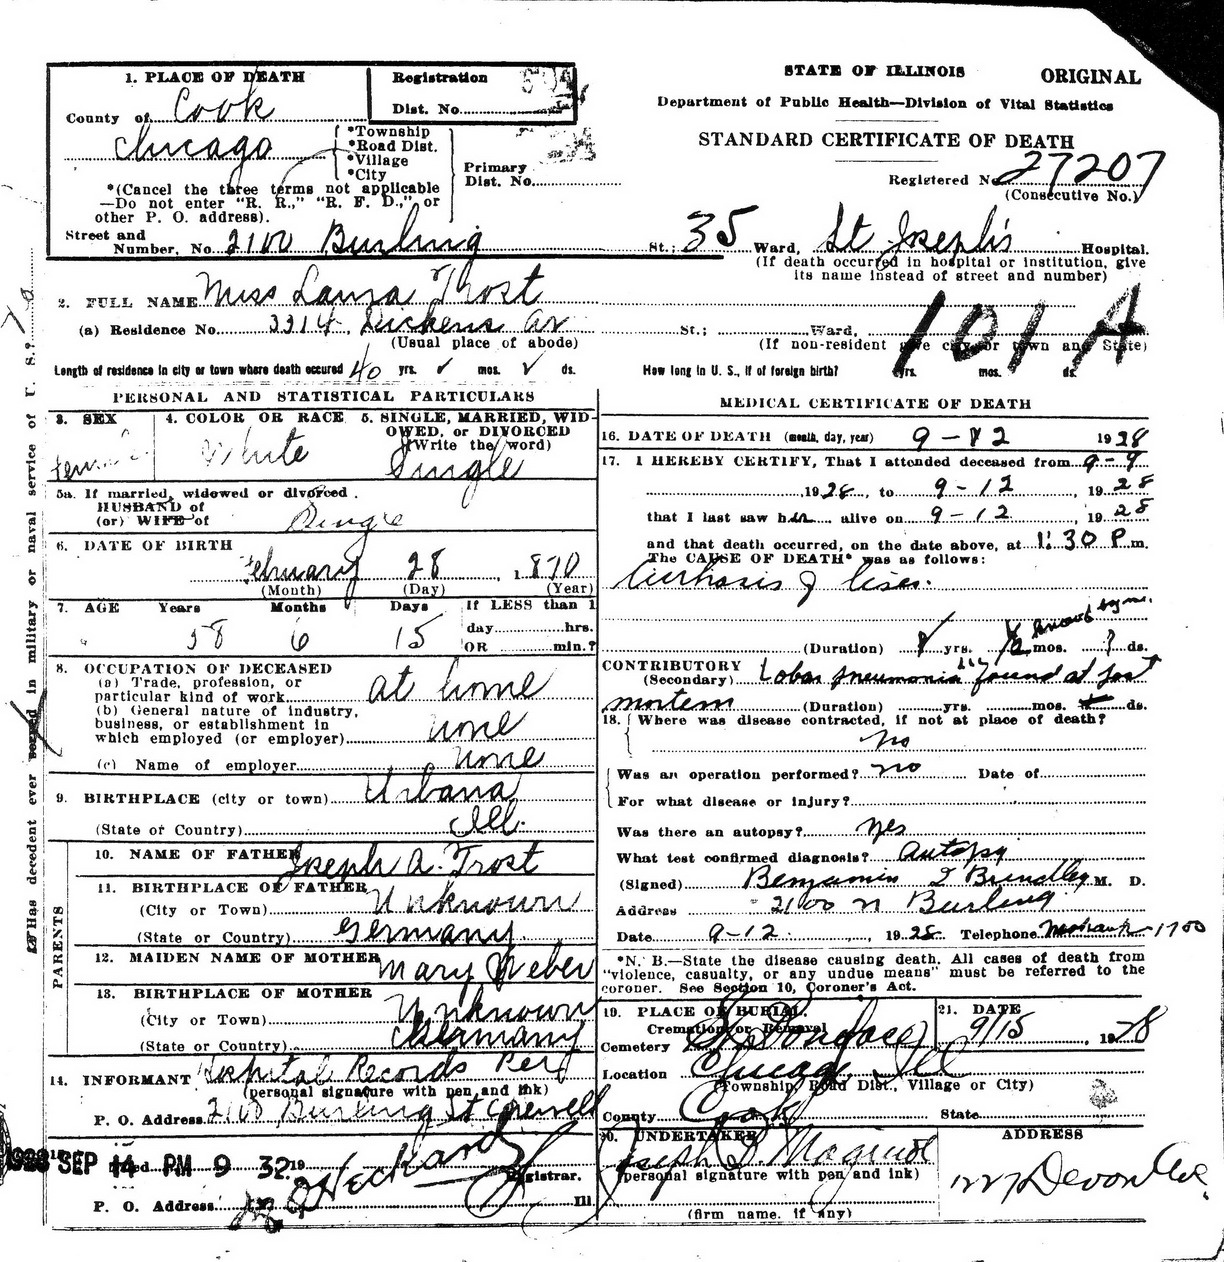 STATE OF ILLINOIS ORIGINAL
Department of Public Health—Division of Vital Statistics
STANDARD CERTIFICATE OF DEATH
Registered No. 27207
(Consecutive No.)
1. PLACE OF DEATH
County of Cook
Chicago
*Township
*Road Dist.
*Village
*City
*(Cancel the three terms not applicable
—Do not enter "R. R.," "R. F. D.," or
other P. O. address).
Registration
Dist. No.
Primary
Dist. No.
Street and
Number, No. 2100 Burling St.; 35 Ward, St Joseph's Hospital.
(If death occurred in hospital or institution, give
its name instead of street and number)
2. FULL NAME Miss Laura Trost
(a) Residence No. 3314 Dickens av St.; Ward,
(Usual place of abode) (If non-resident give city or town and State)
101 A
Length of residence in city or town where death occured 40 yrs. ✓ mos. ✓ ds. How long in U. S., if of foreign birth? yrs. mos. ds.
PERSONAL AND STATISTICAL PARTICULARS
3. SEX 4. COLOR OR RACE 5. SINGLE, MARRIED, WID-
OWED, or DIVORCED
(Write the word)
White Single
5a. If married, widowed or divorced
HUSBAND of
(or) WIFE of
Single
6. DATE OF BIRTH
February 28, 1870
(Month) (Day) (Year)
7. AGE Years Months Days If LESS than 1
58 6 15 day hrs.
OR min.?
8. OCCUPATION OF DECEASED
(a) Trade, profession, or
particular kind of work at home
(b) General nature of industry,
business, or establishment in
which employed (or employer) none
(c) Name of employer none
9. BIRTHPLACE (city or town) Urbana
(State or Country) Ill.
PARENTS
10. NAME OF FATHER Joseph A. Trost
11. BIRTHPLACE OF FATHER
(City or Town) Unknown
(State or Country) Germany
12. MAIDEN NAME OF MOTHER Mary Weber
13. BIRTHPLACE OF MOTHER
(City or Town) Unknown
(State or Country) Germany
14. INFORMANT Hospital Records Per
(personal signature with pen and ink)
P. O. Address 2100 Burling St
1928 SEP 14 PM 9 32
Filed 19
Registrar.
P. O. Address Ill.
Has decedent ever served in military or naval service of U. S.?
MEDICAL CERTIFICATE OF DEATH
16. DATE OF DEATH (month, day, year) 9-12 1928
17. I HEREBY CERTIFY, That I attended deceased from 9-9
1928, to 9-12, 1928
that I last saw her alive on 9-12, 1928
and that death occurred, on the date above, at 1:30 P.m.
The CAUSE OF DEATH* was as follows:
Cirrhosis of liver.
(Duration) yrs. mos. ? ds.
CONTRIBUTORY
(Secondary) Lobar pneumonia found at post
mortem (Duration) yrs. mos. ds.
18. Where was disease contracted, if not at place of death?
no
Was an operation performed? no Date of
For what disease or injury?
Was there an autopsy? yes
What test confirmed diagnosis? Autopsy
(Signed) Benjamin I Brindley M. D.
Address 2100 N Burling
Date 9-12, 1928 Telephone Mohawk 1700
*N. B.—State the disease causing death. All cases of death from
"violence, casualty, or any undue means" must be referred to the
coroner. See Section 10, Coroner's Act.
19. PLACE OF BURIAL 21. DATE
Cremation or Removal
Cemetery St Boniface 9/15 1928
Location Chicago Ill
(Township, Road Dist., Village or City)
County Cook State
20. UNDERTAKER ADDRESS
Joseph
(personal signature with pen and ink) Devon Ave.
(firm name, if any)